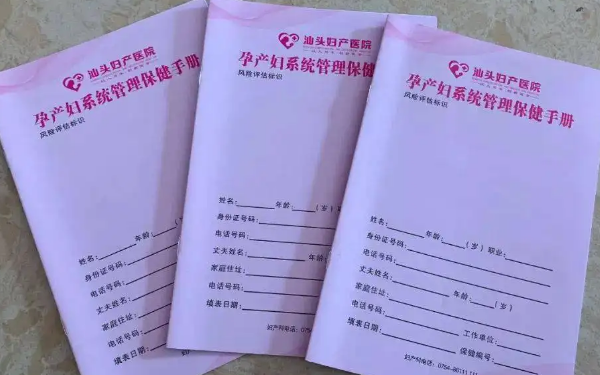 汕头妇产医院
孕产妇系统管理保健手册
风险评估标识
姓名: 年龄: (岁)
身份证号码:
电话号码:
丈夫姓名: 年龄:
家庭住址:
电话号码:
填表日期:
汕头妇产医院
孕产妇系统管理保健
风险评估标识
姓名: 年龄: (岁)
身份证号码:
电话号码:
丈夫姓名: 年龄:
家庭住址:
电话号码:
填表日期:
妇产科电话: 0754
汕头妇产医院
孕产妇系统管理保健手册
风险评估标识
姓名: 年龄: (岁) 职业:
身份证号码:
电话号码:
丈夫姓名: 年龄: (岁)
家庭住址:
电话号码: 工作单位:
填表日期: 保健编号:
妇产科电话: 0754-